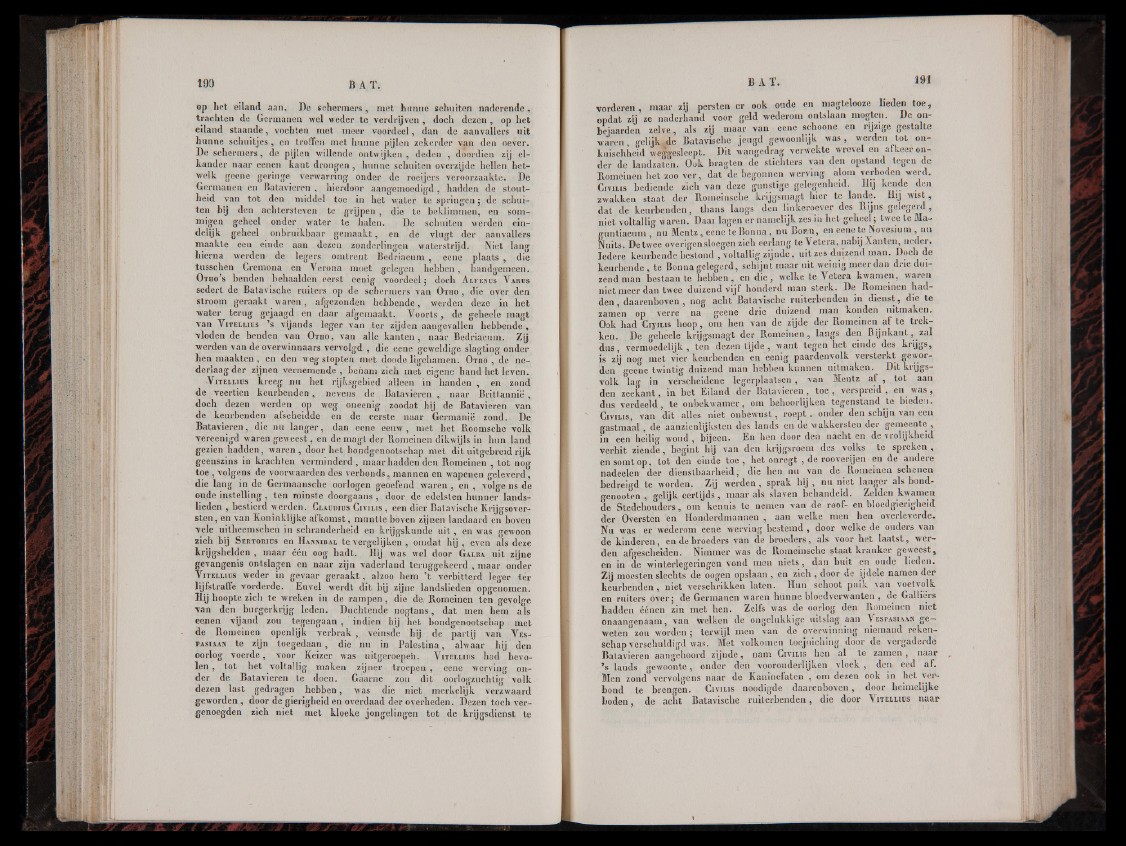 190 B A T.
op het eiland aan. De schermers, met hunne schuiten naderende,
trachten de Germanen wel weder te verdrijven, doch dezen, op het
eiland staande, vochten met meer voordeel, dan de aanvallers uit
hunne schuitjes, en troffen met hunne pijlen zekerder van den oever.
De schermers, de pijlen willende ontwijken, deden, doordien zij el-
kander naar eenen kant drongen, hunne schuiten overzijde hellen het-
welk geene geringe verwarring onder de roeijers veroorzaakte. De
Germanen en Batavieren, hierdoor aangemoedigd, hadden de stout-
heid van tot den middel toe in het water te springen; de schui-
ten bij den achtersteven te grijpen, die te beklimmen, en som-
migen geheel onder water te halen. De schuiten werden ein-
delijk geheel onbruikbaar gemaakt, en de vlugt der aanvallers
maakte een einde aan dezen zonderlingen waterstrijd. Niet lang
hierna werden de legers omtrent Bedriacum, eene plaats, die
tusschen Cremona en Verona moet gelegen hebben, handgemeen.
OTHO's benden behaalden eerst eenig voordeel; doch ALFENUS VARUS
sedert de Batavische ruiters op de schermers van OTHO, die over den
stroom geraakt waren, afgezonden hebbende, werden deze in het
water terug gejaagd en daar afgemaakt. Voorts, de geheele magt
van VITELLIUS 's vijands leger van ter zijden aangevallen hebbende,
vloden de benden van OTHO, van alle kanten, naar Bedriacum. Zij
werden van de overwinnaars vervolgd, die eene geweldige slagting onder
hen maakten, en den weg stopten met doode ligchamen. OTHO, de ne-
derlaag der zijnen vernemende, benam zich met eigene hand het leven.
VITELLIUS kreeg nu het rijksgebied alleen in handen, en zond
de veertien keurbenden, nevens de Batavieren, naar Brittannië,
doch dezen werden op weg oneenig zoodat hij de Batavieren van
de keurbenden afscheidde en de eerste naar Germanië zond. De
Batavieren, die nu langer, dan eene eeuw, met het Roomsche volk
vereenigd waren geweest, en de magt der Romeinen dikwijls in hun land
gezien hadden, waren, door het bondgenootschap met dit uitgebreid rijk
geenszins in krachten verminderd, maar hadden den Romeinen, tot nog
toe, volgens de voorwaarden des verbonds, mannen en wapenen geleverd,
die lang in de Germaansche oorlogen geoefend waren, en, volgens de
oude instelling, ten minste doorgaans, door de edelsten hunner lands-
lieden, bestierd werden. CLAUDIUS CIVILIS, een dier Batavische Krijgsover-
sten, en van Koninklijke afkomst, muntte boven zijnen landaard en boven
vele uitheemschen in schranderheid en krijgskunde uit, en was gewoon
zich bij SERTORIUS en HANNIBAL te vergelijken, omdat hij, even als deze
krijgshelden, maar één oog hadt. Hij was wel door GALBA uit zijne
gevangenis ontslagen en naar zijn vaderland teruggekeerd, maar onder
VITELLIUS weder in gevaar geraakt, alzoo hem 't verbitterd leger ter
lijfstraffe vorderde. Euvel werdt dit bij zijne landslieden opgenomen.
Hij hoopte zich te wreken in de rampen, die de Romeinen ten gevolge
van den burgerkrijg leden. Duchtende nogtans, dat men hem als
eenen vijand zou tegengaan, indien hij het bondgenootschap met
de Romeinen openlijk verbrak, veinsde hij de partij van VES-
PASIAAN te zijn toegedaan, die nu in Palestina, alwaar hij den
oorlog voerde, voor Keizer was uitgeroepen. VITELLIUS had bevo-
len, tot het voltallig maken zijner troepen, eene werving on-
der de Batavieren te doen. Gaarne zou dit oorlogzuchtig volk
dezen last gedragen hebben, was die niet merkelijk verzwaard
geworden, door de gierigheid en overdaad der overheden. Dezen toch ver-
genoegden zich niet met kloeke jongelingen tot de krijgsdienst te
B A T. 191
vorderen, maar zij persten er ook oude en magtelooze lieden toe,
opdat zij ze naderhand voor geld wederom ontslaan mogten. De on-
bejaarden zelve, als zij maar van eene schoone en rijzige gestalte
waren, gelijk de Batavische jeugd gewoonlijk was, werden tot on-
kuischheid weggesleept. Dit wangedrag verwekte wrevel en afkeer on-
der de landzaten. Ook bragten de stichters van den opstand tegen de
Romeinen het zoo ver, dat de begonnen werving alom verboden werd.
CIVILIS bediende zich van deze gunstige gelegenheid. Hij kende den
zwakken staat der Romeinsche krijgsmagt hier te lande. Hij wist,
dat de keurbenden, thans langs den linkeroever des Rijns gelegerd,
niet voltallig waren. Daar lagen er namelijk zes in het geheel; twee te Ma-
guntiacum, nu Mentz, eene te Bonna, nu Bonn, en eene te Novesium, nu
Nuits. De twee overigen sloegen zich eerlang te Vetera, nabij Xanten, neder.
Iedere keurbende bestond, voltallig zijnde, uit zes duizend man. Doch de
keurbende, te Bonna gelegerd, schijnt maar uit weinig meer dan drie dui-
zend man bestaan te hebben, en die, welke te Vetera kwamen, waren
niet meer dan twee duizend vijf honderd man sterk. De Romeinen had-
den, daarenboven, nog acht Batavische ruiterbenden in dienst, die te
zamen op verre na geene drie duizend man konden uitmaken.
Ook had CIVILIS hoop, om hen van de zijde der Romeinen af te trek-
ken. De geheele krijgsmagt der Romeinen, langs den Rijnkant, zal
dus, vermoedelijk, ten dezen tijde, want tegen het einde des krijgs,
is zij nog met vier keurbenden en eenig paardenvolk versterkt gewor-
den geene twintig duizend man hebben kunnen uitmaken. Dit krijgs-
volk lag in verscheidene legerplaatsen, van Mentz af, tot aan
den zeekant, in het Eiland der Batavieren, toe, verspreid, en was,
dus verdeeld, te onbekwamer, om behoorlijken tegenstand te bieden.
CIVILIS, van dit alles niet onbewust, roept, onder den schijn van een
gastmaal, de aanzienlijksten des lands en de wakkersten der gemeente,
in een heilig woud, bijeen. En hen door den nacht en de vrolijkheid
verhit ziende, begint hij van den krijgsroem des volks te spreken,
en somt op, tot den einde toe, het onregt, de rooverijen en de andere
nadeelen der dienstbaarheid, die hen nu van de Romeinen schenen
bedreigd te worden. Zij werden, sprak hij, nu niet langer als bond-
genooten, gelijk eertijds, maar als slaven behandeld. Zelden kwamen
de Stedehouders, om kennis te nemen van de roof- en bloedgierigheid
der Oversten en Honderdmannen, aan welke men hen overleverde.
Nu was er wederom eene werving bestemd, door welke de ouders van
de kinderen, en de broeders van de broeders, als voor het laatst, wer-
den afgescheiden. Nimmer was de Romeinsche staat kranker geweest,
en in de winterlegeringen vond men niets, dan buit en oude lieden.
Zij moesten slechts de oogen opslaan, en zich, door de ijdele namen der
keurbenden, niet verschrikken laten. Hun schoot puik van voetvolk
en ruiters over; de Germanen waren hunne bloedverwanten, de Galliërs
hadden éénen zin met hen. Zelfs was de oorlog den Romeinen niet
onaangenaam, van welken de ongelukkige uitslag aan VESPASIAAN ge-
weten zou worden; terwijl men van de overwinning niemand reken-
schap verschuldigd was. Met volkomen toejuiching door de vergaderde
Batavieren aangehoord zijnde, nam CIVILIS hen al te zamen, naar
's lands gewoonte, onder den vooronderlijken vloek, den eed af.
Men zond vervolgens naar de Kaninefaten, om dezen ook in het ver-
bond te brengen. CIVILIS noodigde daarenboven, door heimelijke
boden, de acht Batavische ruiterbenden, die door VITELLIUS naar